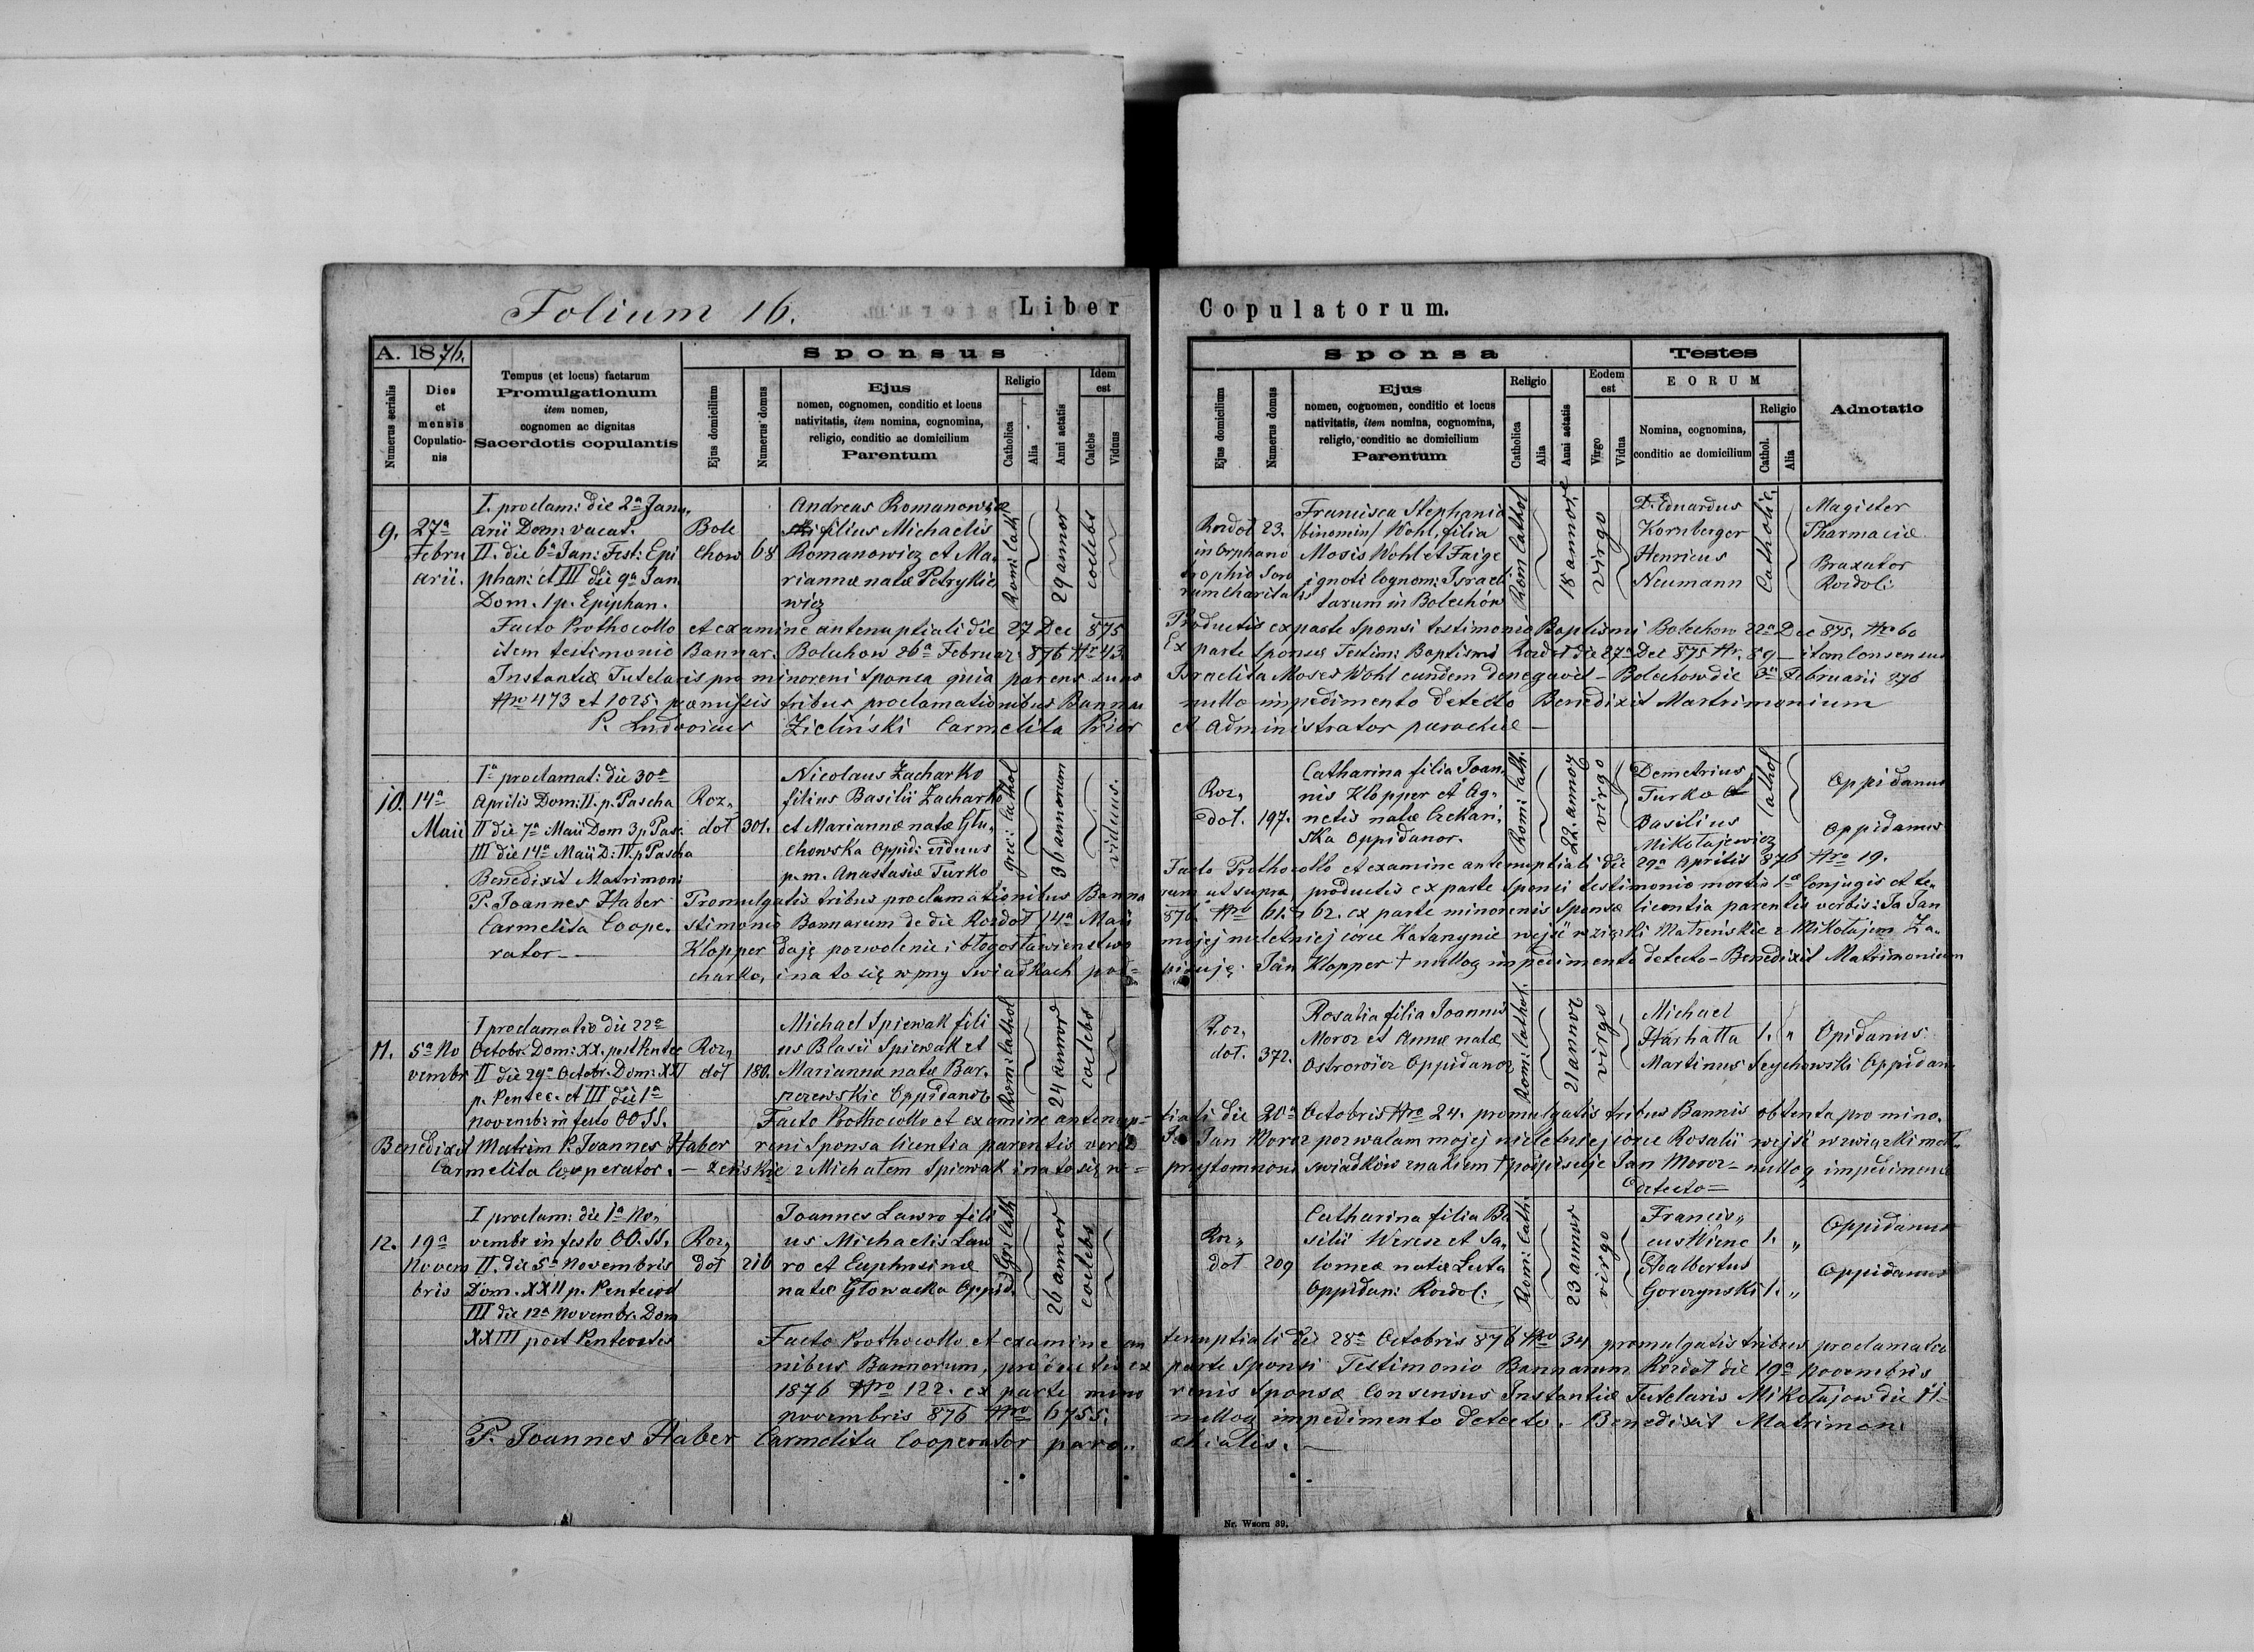 Folium 16.
Liber Copulatorum.
A. 1876.
Sponsus
Numerus serialis
Dies et mensis Copulatio-nis
Tempus (et locus) factarum
Promulgationum
item nomen,
cognomen ac dignitas
Sacerdotis copulantis
Ejus domicilium
Numerus domus
Ejus
nomen, cognomen, conditio et locus
nativitatis, item nomina, cognomina,
religio, conditio ac domicilium
Parentum
Religio
Catholica
Alia
Anni aetatis
Idem est
Caelebs
Viduus
Sponsa
Ejus domicilium
Numerus domus
Ejus
nomen, cognomen, conditio et locus
nativitatis, item nomina, cognomina,
religio, conditio ac domicilium
Parentum
Religio
Catholica
Alia
Anni aetatis
Eodem est
Virgo
Vidua
Testes
EORUM
Nomina, cognomina,
conditio ac domicilium
Religio
Cathol.
Alia
Adnotatio
9.
27a
Febru
arii.
I. proclam: die 2a Janu„
arii Dom: vacat.
II. die 6a Jan: Fest: Epi
phan: et III die 9a Jan
Dom. 1 p. Epiphan.
Bole
chow
68
Andreas Romanowicz
filius Michaelis
Romanowicz et Ma„
riannæ natæ Petrykie
wicz
Rom: cath
29 annor
coelebs
Rozdoł 23.
in Orphano
trophio Soro
rum Charitatis
Francisca Stephania
/binomin/ Wohl, filia
Mosis Wohl et Faige
ignoti Cognom: Israeli
tarum in Bolechów
Rom cathol
18 annor.
virgo
Dr Eduardus
Kornberger
Henricus
Neumann
Catholic.
Magister
Pharmaciæ
Braxator
Rozdoli
Facto Prothocollo et examine antenuptiali die 27 Dec 875 Productis ex parte Sponsi testimonio Baptismi Bolechow 22a Dec 875. Nro 60
item testimonio Bannar. Bolechow 26a Februar 876 Nr 43. Ex parte Sponsæ Testim: Baptismi Rozdoł die 27a Dec 875 Nr. 89 – item Consensus
Instantiæ Tutelaris pro minoreni Sponsa quia parens suus Israelita Moses Wohl eundem denegavit – Bolechow die 3a Februarii 876
Nro 473 et 1025. præmissis tribus proclamationibus Bannar nullo impedimento detecto Benedixit Martrimonium
P. Ludovicus Zieliński Carmelita Prior et Administrator parochiæ –
10.
14a
Maii
Ia proclamat: die 30a
Aprilis Dom: II. p. Pascha
II die 7a Maii Dom 3 p Pas.
III die 14a Maii D: IV. p Pascha
Benedixit Matrimoni
P. Joannes Haber
Carmelita Coope.
rator –
Roz„
doł
301.
Nicolaus Zacharko
filius Basilii Zacharko
et Mariannæ natæ Głu„
chowska Oppid: viduus
p. m. Anastasiæ Turko
grec: Cathol
36 annorum
viduus.
Roz„
doł.
197.
Catharina filia Joan„
nis Klopper et Ag„
netis natæ Czekań„
ska Oppidanor.
Rom: cath.
22. annor
virgo
Demetrius
Turko et
Basilius
Mikołajewicz
Cathol
Oppidanus
Oppidanus
Facto Prothocollo et examine antenuptiali die 29a Aprilis 876 Nro 19.
Promulgatis tribus proclamationibus Banna rum ut supra, productis ex parte Sponsi testimonio mortis 1æ Conjugis et te„
stimonio Bannarum de die Rozdoł 14a Maii 876 Nro 61. & 62. ex parte minorenis Sponsæ licentia parentis verbis: Ja Jan
Klopper daję pozwolenie i błogosławieństwo mojej nieletniej córce Katarzynie wejść w związki Małżeńskie z Mikołajem Za„
charko, i na to się w przy świadkach pod= pisuję. Jan Klopper † nulloq impedimento detecto – Benedixit Matrimonium
11.
5a No
vembr
I proclamatio die 22a
Octobr. Dom: XX. post Pentec
II die 29a Octobr. Dom: XXI
p. Pentec. et III die 1a
novembr in festo OO SS.
Benedixit Matrim P. Joannes Haber
Carmelita Cooperator. –
Roz„
doł
180.
Michael Spiewak fili
us Blasii Spiewak et
Marianna natæ Bar„
szczewskie Oppidanor
Rom: Cathol
24 annor
coelebs
Roz„
doł.
372.
Rosalia filia Joannis
Moroz et Annæ natæ
Ostrowicz Oppidanor
Rom: Cathol.
21 annor
virgo
Michael
Harhatta 1. „ Opidanus
Martinus Seychowski Oppidan.
Facto Prothocollo et examine antenup= tiali die 20a Octobris Nro 24. promulgatis tribus Bannis obtenta pro mino„
reni Sponsa licentia parentis verbis Ja Jan Moroz pozwalam mojej nieletniej córce Rosalii wejść w związki mał„
żeńskie z Michałem Spiewak i na to się w = przytomności świadków znakiem † podpisuję Jan Moroz – nulloq impedimento
detecto =
12.
19a
Novem
bris
I proclam: die 1a No„
vembr in festo OO. SS.
II. die 5a Novembris
Dom. XXII p. Pentecost
III die 12a Novembr. Dom
XXIII post Pentecostes
Roz„
doł
216
Joannes Lawro fili
us Michaelis Law
ro et Euphrosinæ
natæ Głowacka Oppid.
Gr: Cath
26 annor
coelebs
Roz„
doł
209
Catharina filia Ba
silii Weresz et Sa„
lomeæ natæ Luta
Oppidan: Rozdol:
Rom: Cath.
23 annor
virgo
Francis„
cus Wiene 1. „ Oppidanus
Adalbertus
Gorczynski 1. „ Oppidanus
Facto Prothocollo et examine an tenuptiali die 28a Octobris 876 Nro 34 promulgatis tribus proclamatio
nibus Bannorum, productis ex parte Sponsi Testimonio Bannarum Rozdoł die 19a Novembris
1876 Nro 122. ex parte mino renis Sponsæ Consensus Instantiæ Tutelaris Mikołajow die 11
novembris 876 Nro 6755. nulloq impedimento detecto. – Benedixit Matrimoni
P. Joannes Haber Carmelita Cooperator paro„ chialis. –
Nr. Wzoru 39.